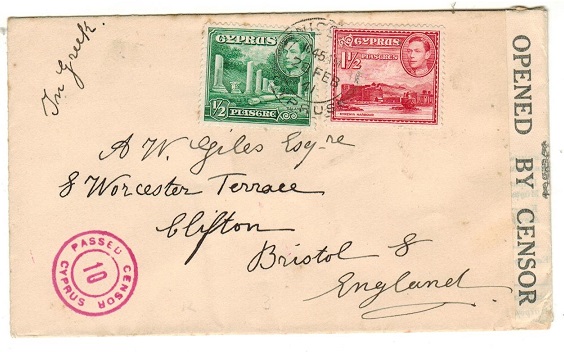 In Greek.
CYPRUS
½
PIASTRE
CYPRUS
1½
PIASTRES
KYRENIA HARBOUR
A W. Giles Esq-re
8 Worcester Terrace
Clifton
Bristol 8
England
PASSED CENSOR
10
CYPRUS
OPENED BY CENSOR